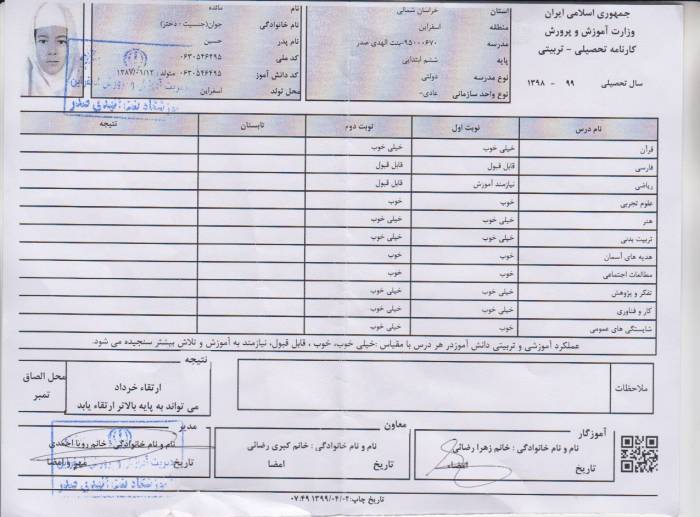 جمهوری اسلامی ایران
وزارت آموزش و پرورش
کارنامه تحصیلی - تربیتی
سال تحصیلی ۹۹ - ۱۳۹۸
استان خراسان شمالی
منطقه اسفراین
مدرسه ۹۵۰۰۰۶۷۰-بنت الهدی صدر
پایه ششم ابتدایی
نوع مدرسه دولتی
نوع واحد سازمانی عادی-
نام مائده
نام خانوادگی جوان(جنسیت : دختر)
نام پدر حسین
کد ملی ۰۶۳۰۵۴۶۴۹۵
کد دانش آموز ۰۶۳۰۵۴۶۴۹۵ متولد : ۱۳۸۷/۰۱/۱۲
محل تولد اسفراین
نام درس نوبت اول نوبت دوم تابستان نتیجه
قرآن خیلی خوب خیلی خوب
فارسی قابل قبول قابل قبول
ریاضی نیازمند آموزش قابل قبول
علوم تجربی خوب خوب
هنر خیلی خوب خیلی خوب
تربیت بدنی خیلی خوب خیلی خوب
هدیه های آسمان خوب خوب
مطالعات اجتماعی خوب خوب
تفکر و پژوهش خیلی خوب خیلی خوب
کار و فناوری خیلی خوب خیلی خوب
شایستگی های عمومی خیلی خوب خیلی خوب
عملکرد آموزشی و تربیتی دانش آموزدر هر درس با مقیاس :خیلی خوب، خوب ، قابل قبول، نیازمند به آموزش و تلاش بیشتر سنجیده می شود.
ملاحظات
نتیجه
ارتقاء خرداد
می تواند به پایه بالاتر ارتقاء یابد
محل الصاق
تمبر
آموزگار
نام و نام خانوادگی : خانم زهرا رضائی
امضاء
تاریخ
معاون
نام و نام خانوادگی : خانم کبری رضائی
امضا
تاریخ
مدیر
نام و نام خانوادگی : خانم رویا احمدی
مهر و امضا
تاریخ
تاریخ چاپ:۱۳۹۹/۰۴/۰۲ ۰۷:۴۹